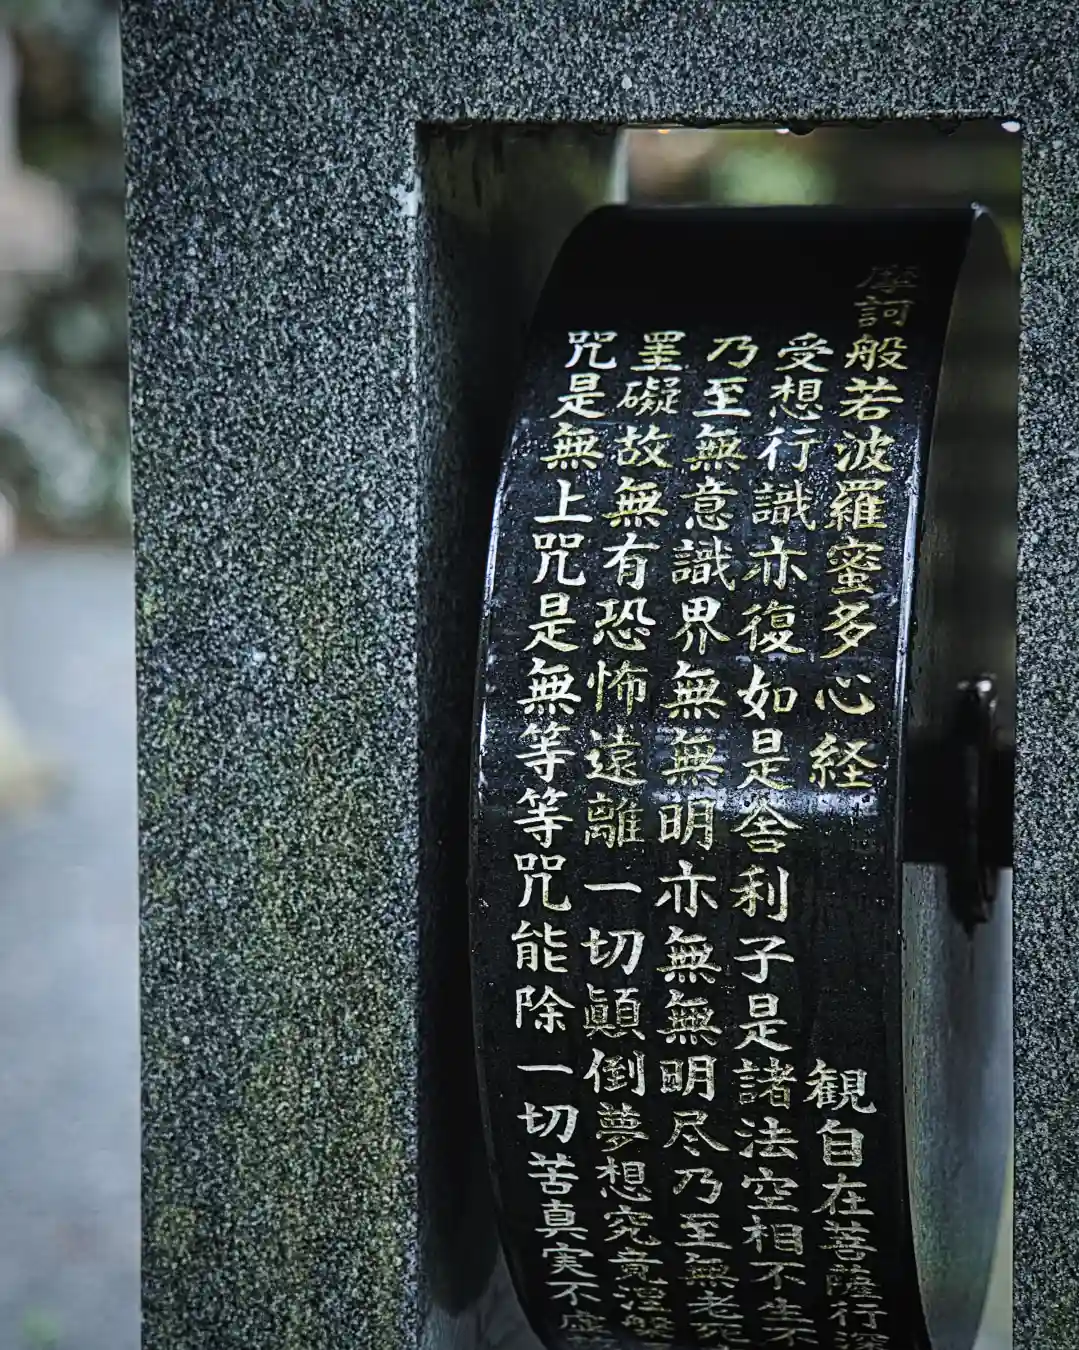 摩訶般若波羅蜜多心経 観自在菩薩行深
受想行識亦復如是舎利子是諸法空相不生不
乃至無意識界無無明亦無無明尽乃至無老死
罣礙故無有恐怖遠離一切顛倒夢想究竟涅槃
咒是無上咒是無等等咒能除一切苦真実不虚